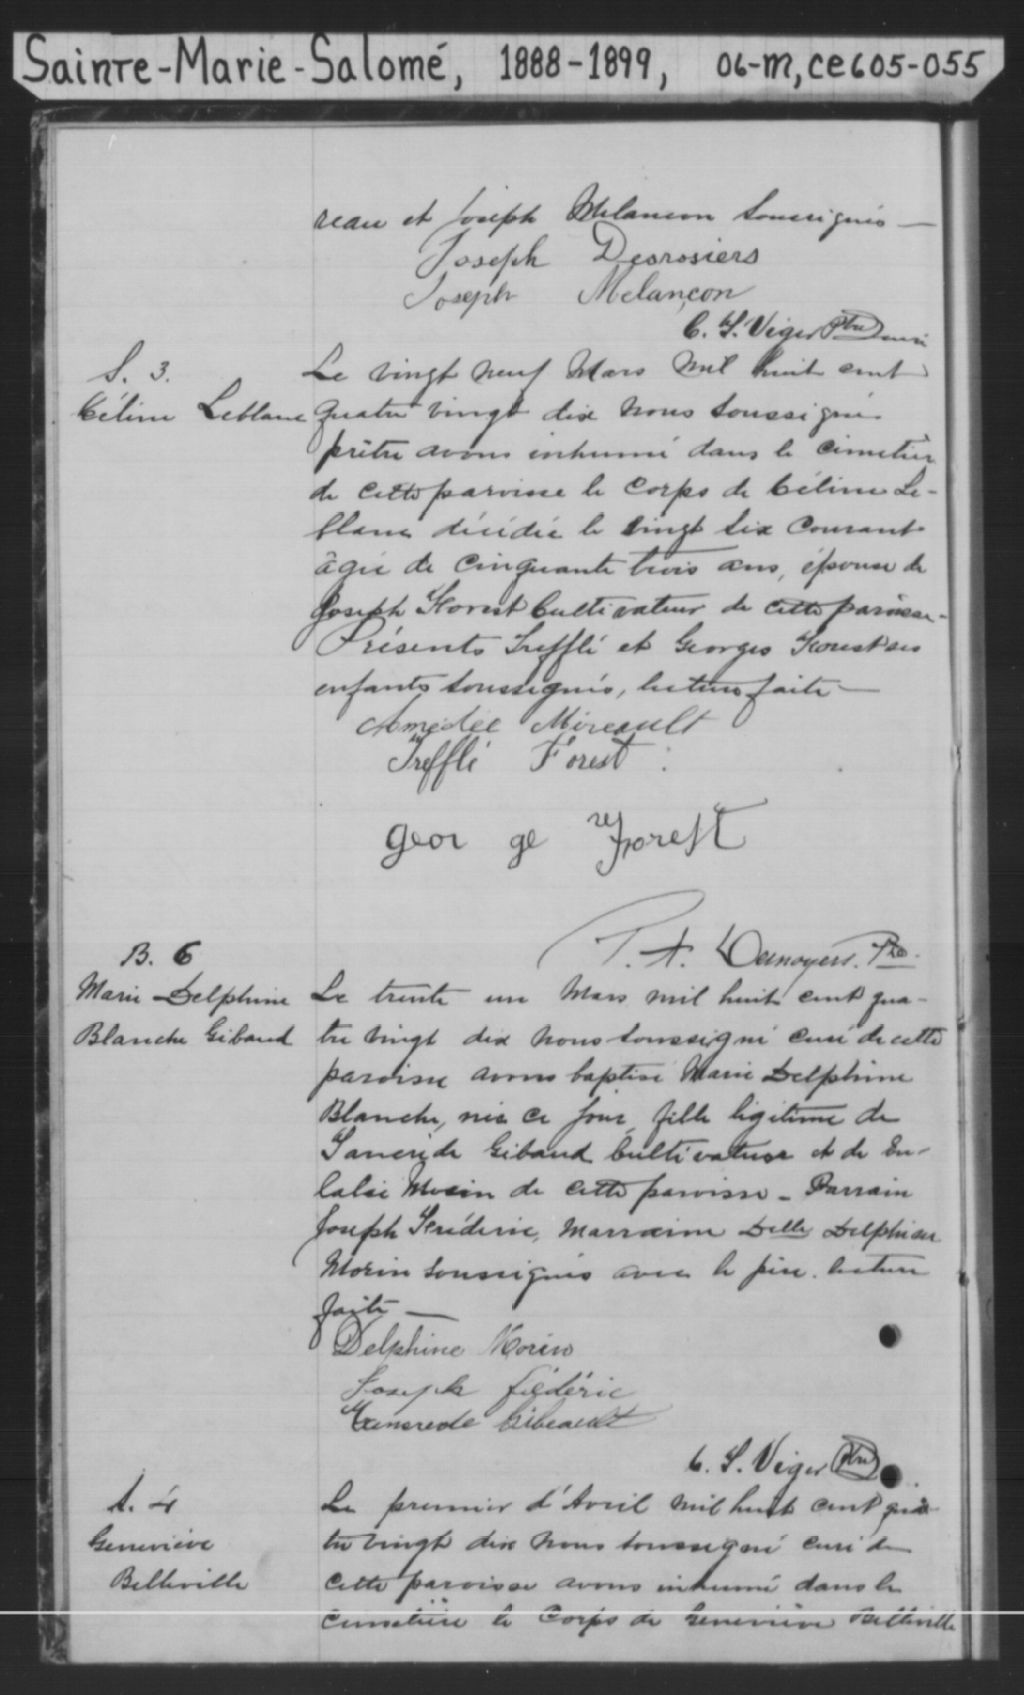 Sainte-Marie-Salomé, 1888-1899, 06-M, CE605-055
reau et Joseph Melancon Soussignés —
Joseph Desrosiers
Joseph Melançon
C. S. Viger Ptre
S. 3.
Céline Leblanc
Le vingt neuf Mars mil huit cent
quatre vingt dix nous soussigné
prêtre avons inhumé dans le cimetière
de cette paroisse le corps de Céline Le-
blanc décédée le vingt six courant
âgée de cinquante trois ans, épouse de
Joseph Forest Cultivateur de cette paroisse -
Présents Trefflé et Georges Forest ses
enfants soussignés, lecture faite —
Amédée Mireault
Trefflé Forest
geor ge Forest
Ptre
B. 6
Marie Delphine
Blanche Gibaud
Le trente un Mars mil huit cent qua-
tre vingt dix nous soussigné curé de cette
paroisse avons baptisé Marie Delphine
Blanche, née ce jour, fille légitime de
Gibaud Cultivateur et de Eu-
lalie Morin de cette paroisse - Parrain
Joseph Fréderic, Marraine Delle Delphine
Morin soussignés avec le père. lecture
faite —
Delphine Morin
Joseph fédéric
Gibeault
C. S. Viger Ptre
S. 4
Geneviève
Belleville
Le premier d'Avril mil huit cent qua
tre vingt dix nous soussigné curé de
cette paroisse avons inhumé dans le
cimetière le Corps de Geneviève Belleville